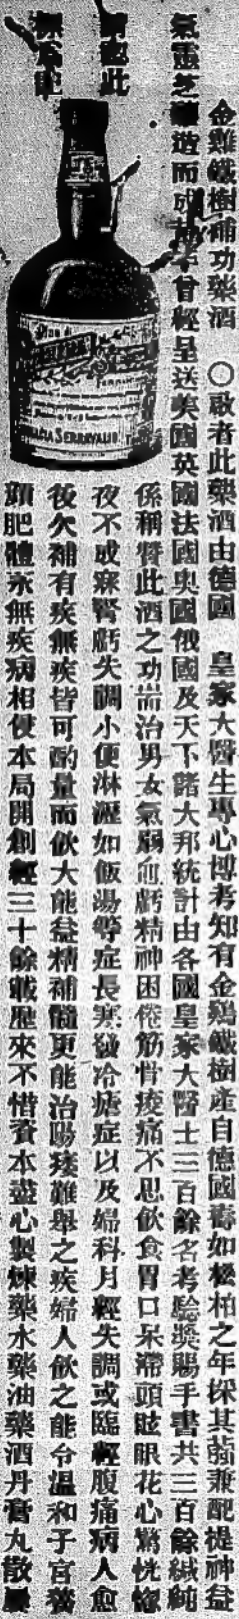 金雞鐵樹補功藥酒 ○啟者此藥酒由德國 皇家大醫生專心博考知有金鷄鐵樹產自德國壽如松柏之年採其蒟兼配提神益
氣靈芝 造而成 曾經呈送美國英國法國奥國俄國及天下諸大邦統計由各國皇家大醫士三百餘名考驗奬賜手書共三百餘緘純
係稱贊此酒之功耑治男女氣弱血虧精神困倦筋骨痠痛不思飲食胃口呆滯頭眩眼花心驚恍惚
夜不成寐腎虧失調小便淋瀝如飯湯等症長寒發冷瘧症以及婦科月經失調或臨經腹痛病人愈
後欠補有疾無疾皆可酌量而飲大能益精補髓更能治陽痿難舉之疾婦人飲之能令溫和子宮發
顏肥體永無疾病相侵本局開創經三十餘載歷來不惜資本盡心製煉藥水藥油藥酒丹膏丸散
認此
為記
SERRAVALLO